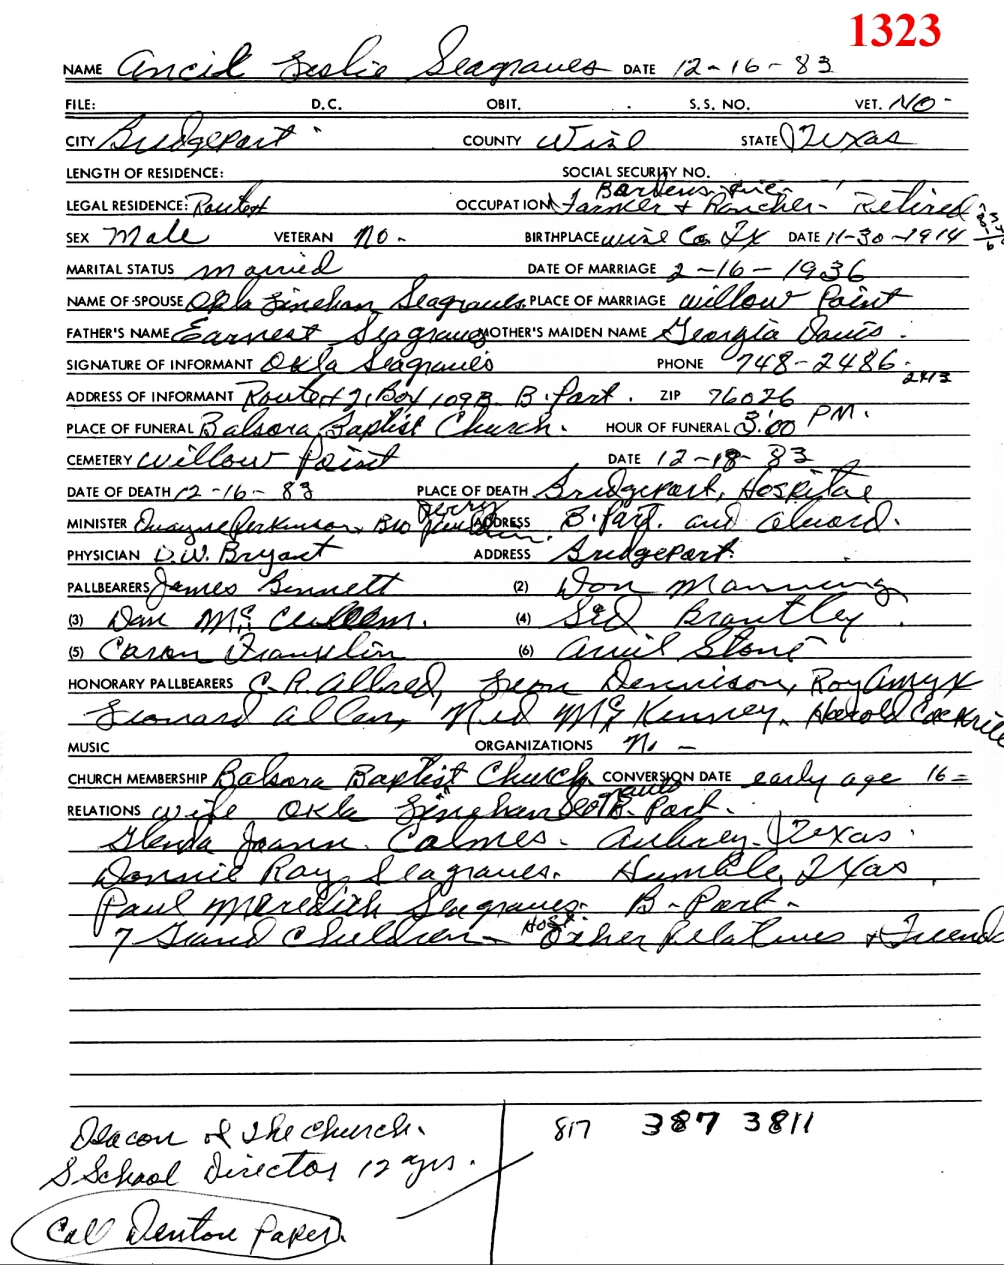 1323
NAME Ancil Leslie Seagraves DATE 12-16-83
FILE: D.C. OBIT. S.S. NO. VET. NO-
CITY Bridgeport COUNTY Wise STATE Texas
LENGTH OF RESIDENCE: SOCIAL SECURITY NO.
LEGAL RESIDENCE: OCCUPATION Farmer + Rancher - Retired
SEX Male VETERAN No - BIRTHPLACE Wise Co. TX DATE 11-30-1914
MARITAL STATUS Married DATE OF MARRIAGE 2-16-1936
NAME OF SPOUSE Okla Linehan Seagraves PLACE OF MARRIAGE Willow Point
FATHER'S NAME Earnest Seagraves MOTHER'S MAIDEN NAME Georgia Davis.
SIGNATURE OF INFORMANT Okla Seagraves PHONE 748-2486-
2413
ADDRESS OF INFORMANT Box 109B B. Port. ZIP 76026
PLACE OF FUNERAL Balsora Baptist Church. HOUR OF FUNERAL 3:00 PM.
CEMETERY Willow Point DATE 12-18-83
DATE OF DEATH 12-16-83 PLACE OF DEATH Bridgeport, Hospital
MINISTER Duayne Perkinson, Bro Jerry ADDRESS B. Port. and Alvord.
PHYSICIAN D.W. Bryant ADDRESS Bridgeport.
PALLBEARERS James Bennett (2) Don Manning
(3) Dan (4) Sid Brantley.
(5) Caron Franklin (6) Stone
HONORARY PALLBEARERS C.R. Allred, Leon Dennison, Roy Amyx
Leonard Allen, Ned McKenney. Harold
MUSIC ORGANIZATIONS No -
CHURCH MEMBERSHIP Balsora Baptist Church CONVERSION DATE early age 16=
RELATIONS Wife Okla Linehan B. Port.
Glenda Joann Calmes. Aubrey, Texas.
Donnie Ray Seagraves. Humble, Texas.
Paul Meredith Seagraves. B-Port-
7 Grand Children - Host Other Relatives + Friends
Deacon of the Church.
S School Director 12 yrs.
817 387 3811
Call Denton Paper.